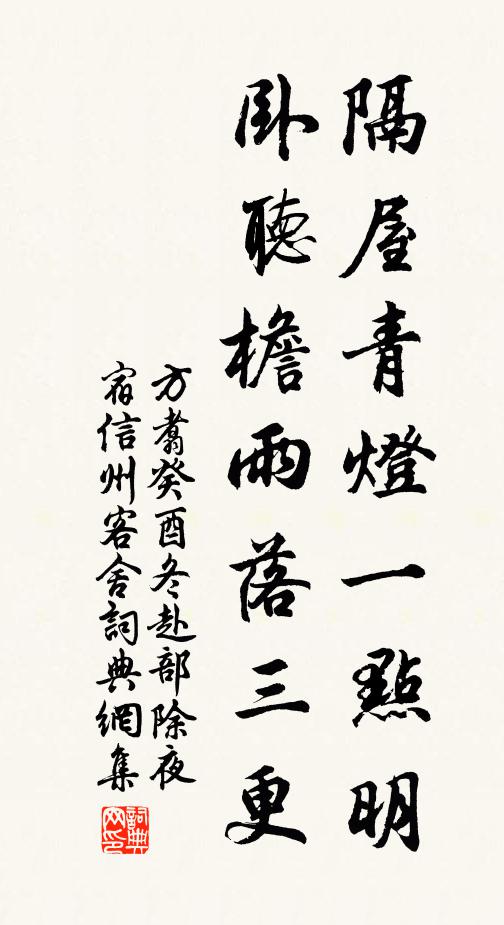 隔屋青燈一點明
卧聽檐雨落三更
方翥癸酉冬赴部除夜
宿信州客舍詞典網集
詞典
网印